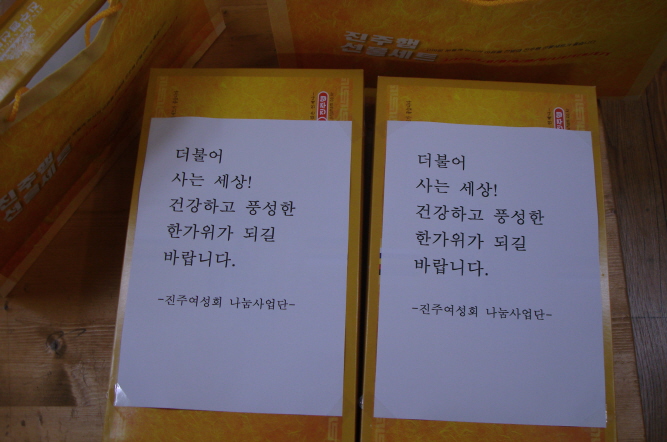 진주햄
선물세트
진주햄
선물세트
더불어
사는 세상!
건강하고 풍성한
한가위가 되길
바랍니다.
-진주여성회 나눔사업단-
더불어
사는 세상!
건강하고 풍성한
한가위가 되길
바랍니다.
-진주여성회 나눔사업단-